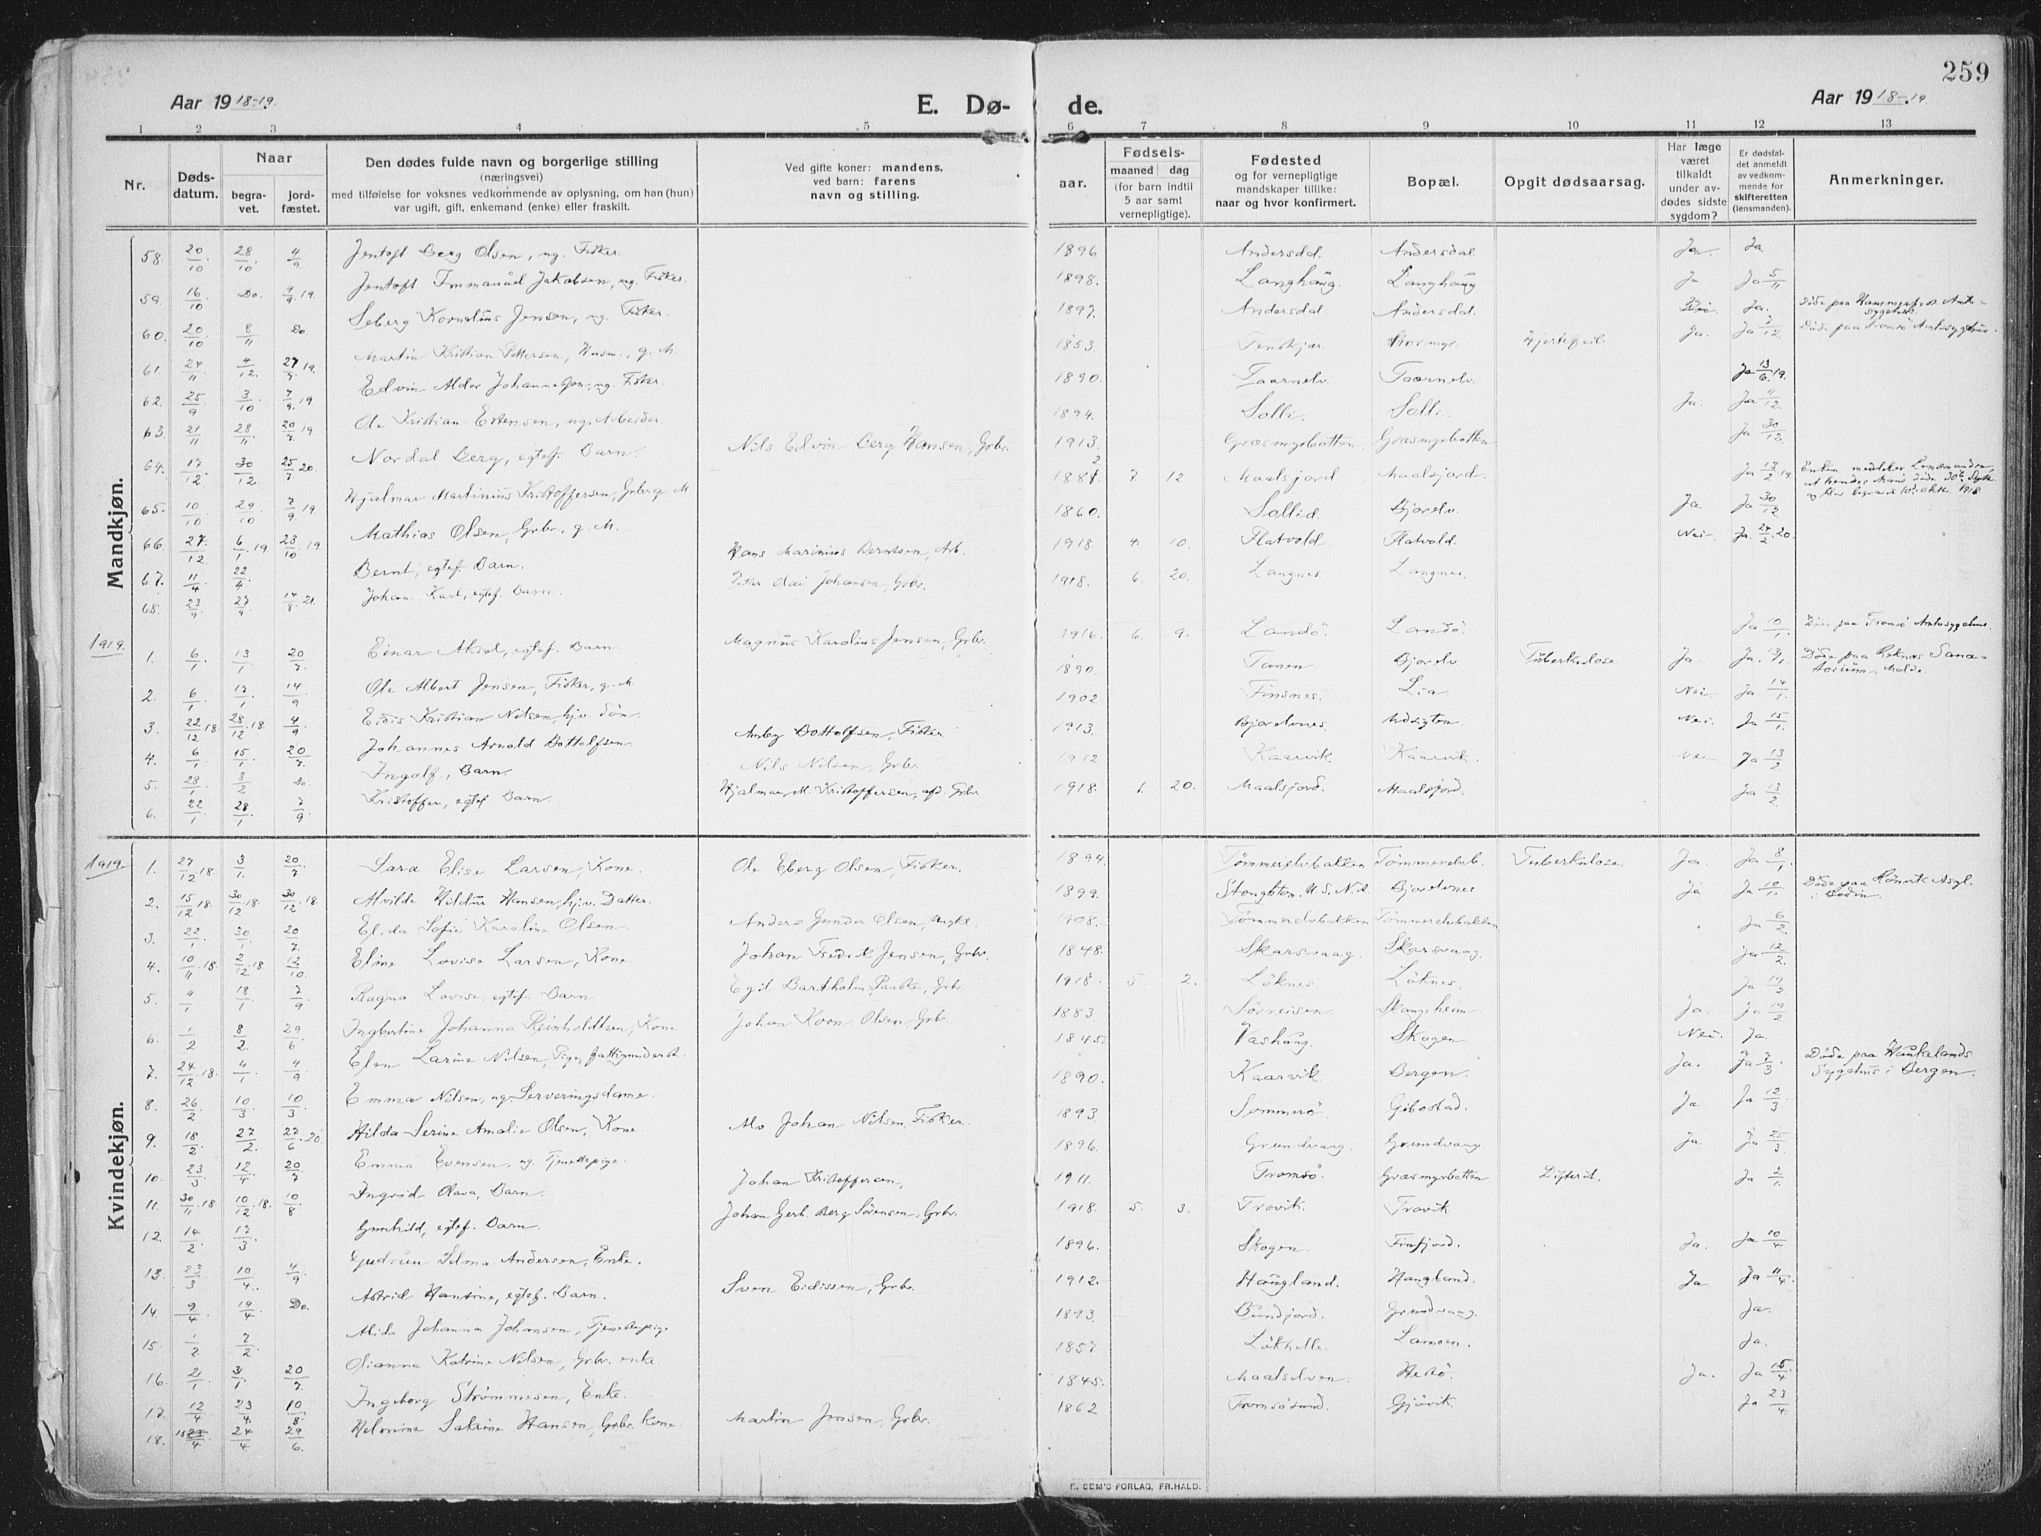 259
Aar 1918-19.
E. Dø-
de.
Aar 1918-19
1 2 3 4 5 6 7 8 9 10 11 12 13
Nr.
Døds-
datum.
Naar
begra-
vet.
jord-
fæstet.
Den dødes fulde navn og borgerlige stilling
(næringsvei)
med tilføielse for voksnes vedkommende av oplysning, om han (hun)
var ugift, gift, enkemand (enke) eller fraskilt.
Ved gifte koner: mandens,
ved barn: farens
navn og stilling.
Fødsels-
aar.
maaned dag
(for barn indtil
5 aar samt
vernepligtige).
Fødested
og for vernepligtige
mandskaper tillike:
naar og hvor konfirmert.
Bopæl.
Opgit dødsaarsag.
Har læge
været
tilkaldt
under av-
dødes sidste
sygdom?
Er dødsfal-
det anmeldt
av vedkom-
mende for
skifteretten
(lensmanden).
Anmerkninger.
Mandkjøn.
58. 20/10 28/10 4/9 Jentoft Berg Olsen, ug. Fisker. 1896 Andersdal Andersdal Ja. Ja
59. 16/10 Do. 4/9 19. Jentoft Immanuel Jakobsen, ug. Fisker. 1898. Langhaug. Langhaug Ja Ja 5/11
60. 20/10 8/11 Do Seberg Kornelius Jensen, ug. Fisker. 1897. Andersdal Andersdal. Ja. Døde paa Hammerfest Amts-
sygehus.
61 24/11 4/12. 27/7 19. Martin Kristian Pettersen, Husm., g. M. 1853 Tenskjær Stormyr. Hjertefeil. Ja. Ja 7/12 Døde paa Tromsø Amtssygehus.
62. 25/9 3/10 7/9. 19 Edvin Aldor Johannesen, ug. Fisker. 1890. Taarnelv. Taarnelv. Ja 13/6. 19.
63. 21/11 28/11 20/7 19. Ole Kristian Estensen, ug. Arbeider 1894. Solli. Solli. Ja. Ja 11/12.
64. 17/12 30/12. 25/7 20. Nordal Berg, egtef. Barn. Nils Edvin Berg Hansen, Grbr. 1913 Græsmyrbotten Græsmyrbotten Ja 30/12.
65. 10/10 29/10 7/9 19. Hjalmar Martinius Kristoffersen, Grbr. g. M. 1881 7 12 Maalsjord Maalsjord. Ja 13/2 19 Enken meddeler Lensmanden,
at hendes Mand døde 30te Septb
og blev begravet 10. oktb. 1918
66. 27/12 6/1. 19. 23/10 19. Mathias Olsen, Grbr., g. M. 1860. Sollid. Bjorelv. Ja Ja 30/12
67. 11/4 22/4. Bernt, egtef. Barn. Hans Marinius Berntsen, Arb. 1918. 4. 10. Flatvold Flatvold. Nei. Ja. 27/2. 20.
68. 23/9. 27/9. 14/8 21. Johan Karl, egtef. Barn. Peter Olai Johansen, Grbr. 1918. 6. 20. Langnes. Langnes.
1919.
1. 6/1 13/1 20/7. Einar Aksel, egtef. Barn Magnus Karolius Jensen, Grbr. 1916. 6. 9. Landø. Landø. Ja 10/1. Døde paa Tromsø Amtssygehus.
2. 6/1 17/1 14/9 Ole Albert Jensen, Fisker, g. M. 1890. Tanen Bjorelv Tuberkulose Ja. Ja. 13/1. Døde paa Reknæs Sana-
torium, Molde.
3. 22/12 18 28/12. 18. 4/9. Eidis Kristian Nilsen, hj.v. Søn 1902 Finsnes. Lia Nei. Ja 14/1.
4. 6/1 15/1. 20/7 Johannes Arnold Bottolfsen. Amby Bottolfsen, Fisker 1913. Bjorelvnes Udsigten Nei. Ja 15/1.
5. 28/1. 8/2 Do Ingolf, Barn. Nils Nilsen, Grbr. 1912 Kaarvik. Kaarvik. Nei. Ja 13/2
6. 22/1 28/1. 7/9. Kristoffer, egtef. Barn. Hjalmar M. Kristoffersen, afd. Grbr 1918 20. Maalsjord. Maalsjord. Ja 13/2.
Kvindekjøn.
1919.
1. 27/12 18 3/1. 20/7 Sara Elise Larsen, Kone. Ole Eberg Olsen, Fisker. 1894. Tømmerelvbakken Tømmerelvb. Tuberkulose. Ja. Ja 8/1.
2. 15/12 18. 30/12 18. 30/12. 18 Alvilde Hildur Hansen, hj.v. Datter. 1899. Bjorelvnes Ja Ja 10/1. Døde paa Rønvik Asyl
i Bodin.
3. 22/1 30/1. 20/7. Elida Sofie Karoline Olsen Anders Gunder Olsen, 1908. Tømmerelvbakken Tømmerelvbakken Ja 6/2.
4. 10/1 18. 2/12 18 13/10. Eline Lovise Larsen, Kone Johan Fredrik Jensen, Grbr. 1848. Skarsvaag. Skarsvaag. Ja 12/2.
5. 9/1 18/1 7/9 Ragna Lovise, egtef. Barn Egil Bartholm Paabke, Grbr. 1918. 5 2. Løknes. Løknes. Ja 19/3
6. 1/2 8/2. 29/6 Ingbertine Johanna Reinholdtsen, Kone Johan Korn. Olsen, Grbr. 1883 Sørreisen Skangheim Ja. Ja 19/2
7. 24/12 18. 4/1 4/9 Elen Larine Nilsen, Pige, fattigunderst. 1845. Vashaug. Skogen Nei. Ja.
8. 26/2 10/3 10/3. Emma Nilsen, ug. Serveringsdame. 1890. Kaarvik Bergen. Ja. Ja 7/3 Døde paa Haukelands
Sygehus i Bergen.
9. 18/2. 27/2. 27/6. 20 Hilda Serine Amalie Olsen, Kone. Alv Johan Nilsen, Fisker. 1893 Sommerø Gibostad. Ja Ja 12/3
10. 23/3 12/4 20/7 Emma Evensen, ug. Tjenestepige. 1896. Grundvaag. Grundvaag Ja Ja 25/3.
11. 30/11 18 10/12. 18. 10/8 Ingrid Olava, Barn. Johan Kristoffersen, 1911. Tromsø. Græsmyrbotten Difterit. Ja 2/1.
12. 14/2. 17/3. Gunhild, egtef. Barn Johan Gerh. Berg Sørensen, Grbr. 1918. 5. 3. Trovik. Trovik
13. 23/3 10/4. 4/9 Gjudrun Selma Andersen, Enke. 1896. Skogen. Finfjord. Ja. Ja 10/4
14. 9/4 19/4 Do. Astrid Hansine, egtef. Barn. Sven Eidissen, Grbr. 1912. Haugland. Haugland. Ja Ja 11/4.
15. 1/2 7/2. Alida Johanna Johansen, Tjenestepige 1893. Bundjord. Grundvaag. Ja.
16. 21/1 31/1 20/7 Olianna Katrine Nilsen, Grbr. enke. 1857 Løkhelle. Lamoen. Ja.
17. 12/4 23/4. 10/8. Ingeborg Strømmesen, Enke. 1845. Maalselven Hestø. Ja. Ja 15/4
18. 15/4 24/4 29/6. Helmine Sakrine Hansen, Grbr. Kone. Martin Jensen, Grbr. 1862 Tromsøsund. Gjøvik Ja 23/4
E. SEM'S FORLAG, FR.HALD.